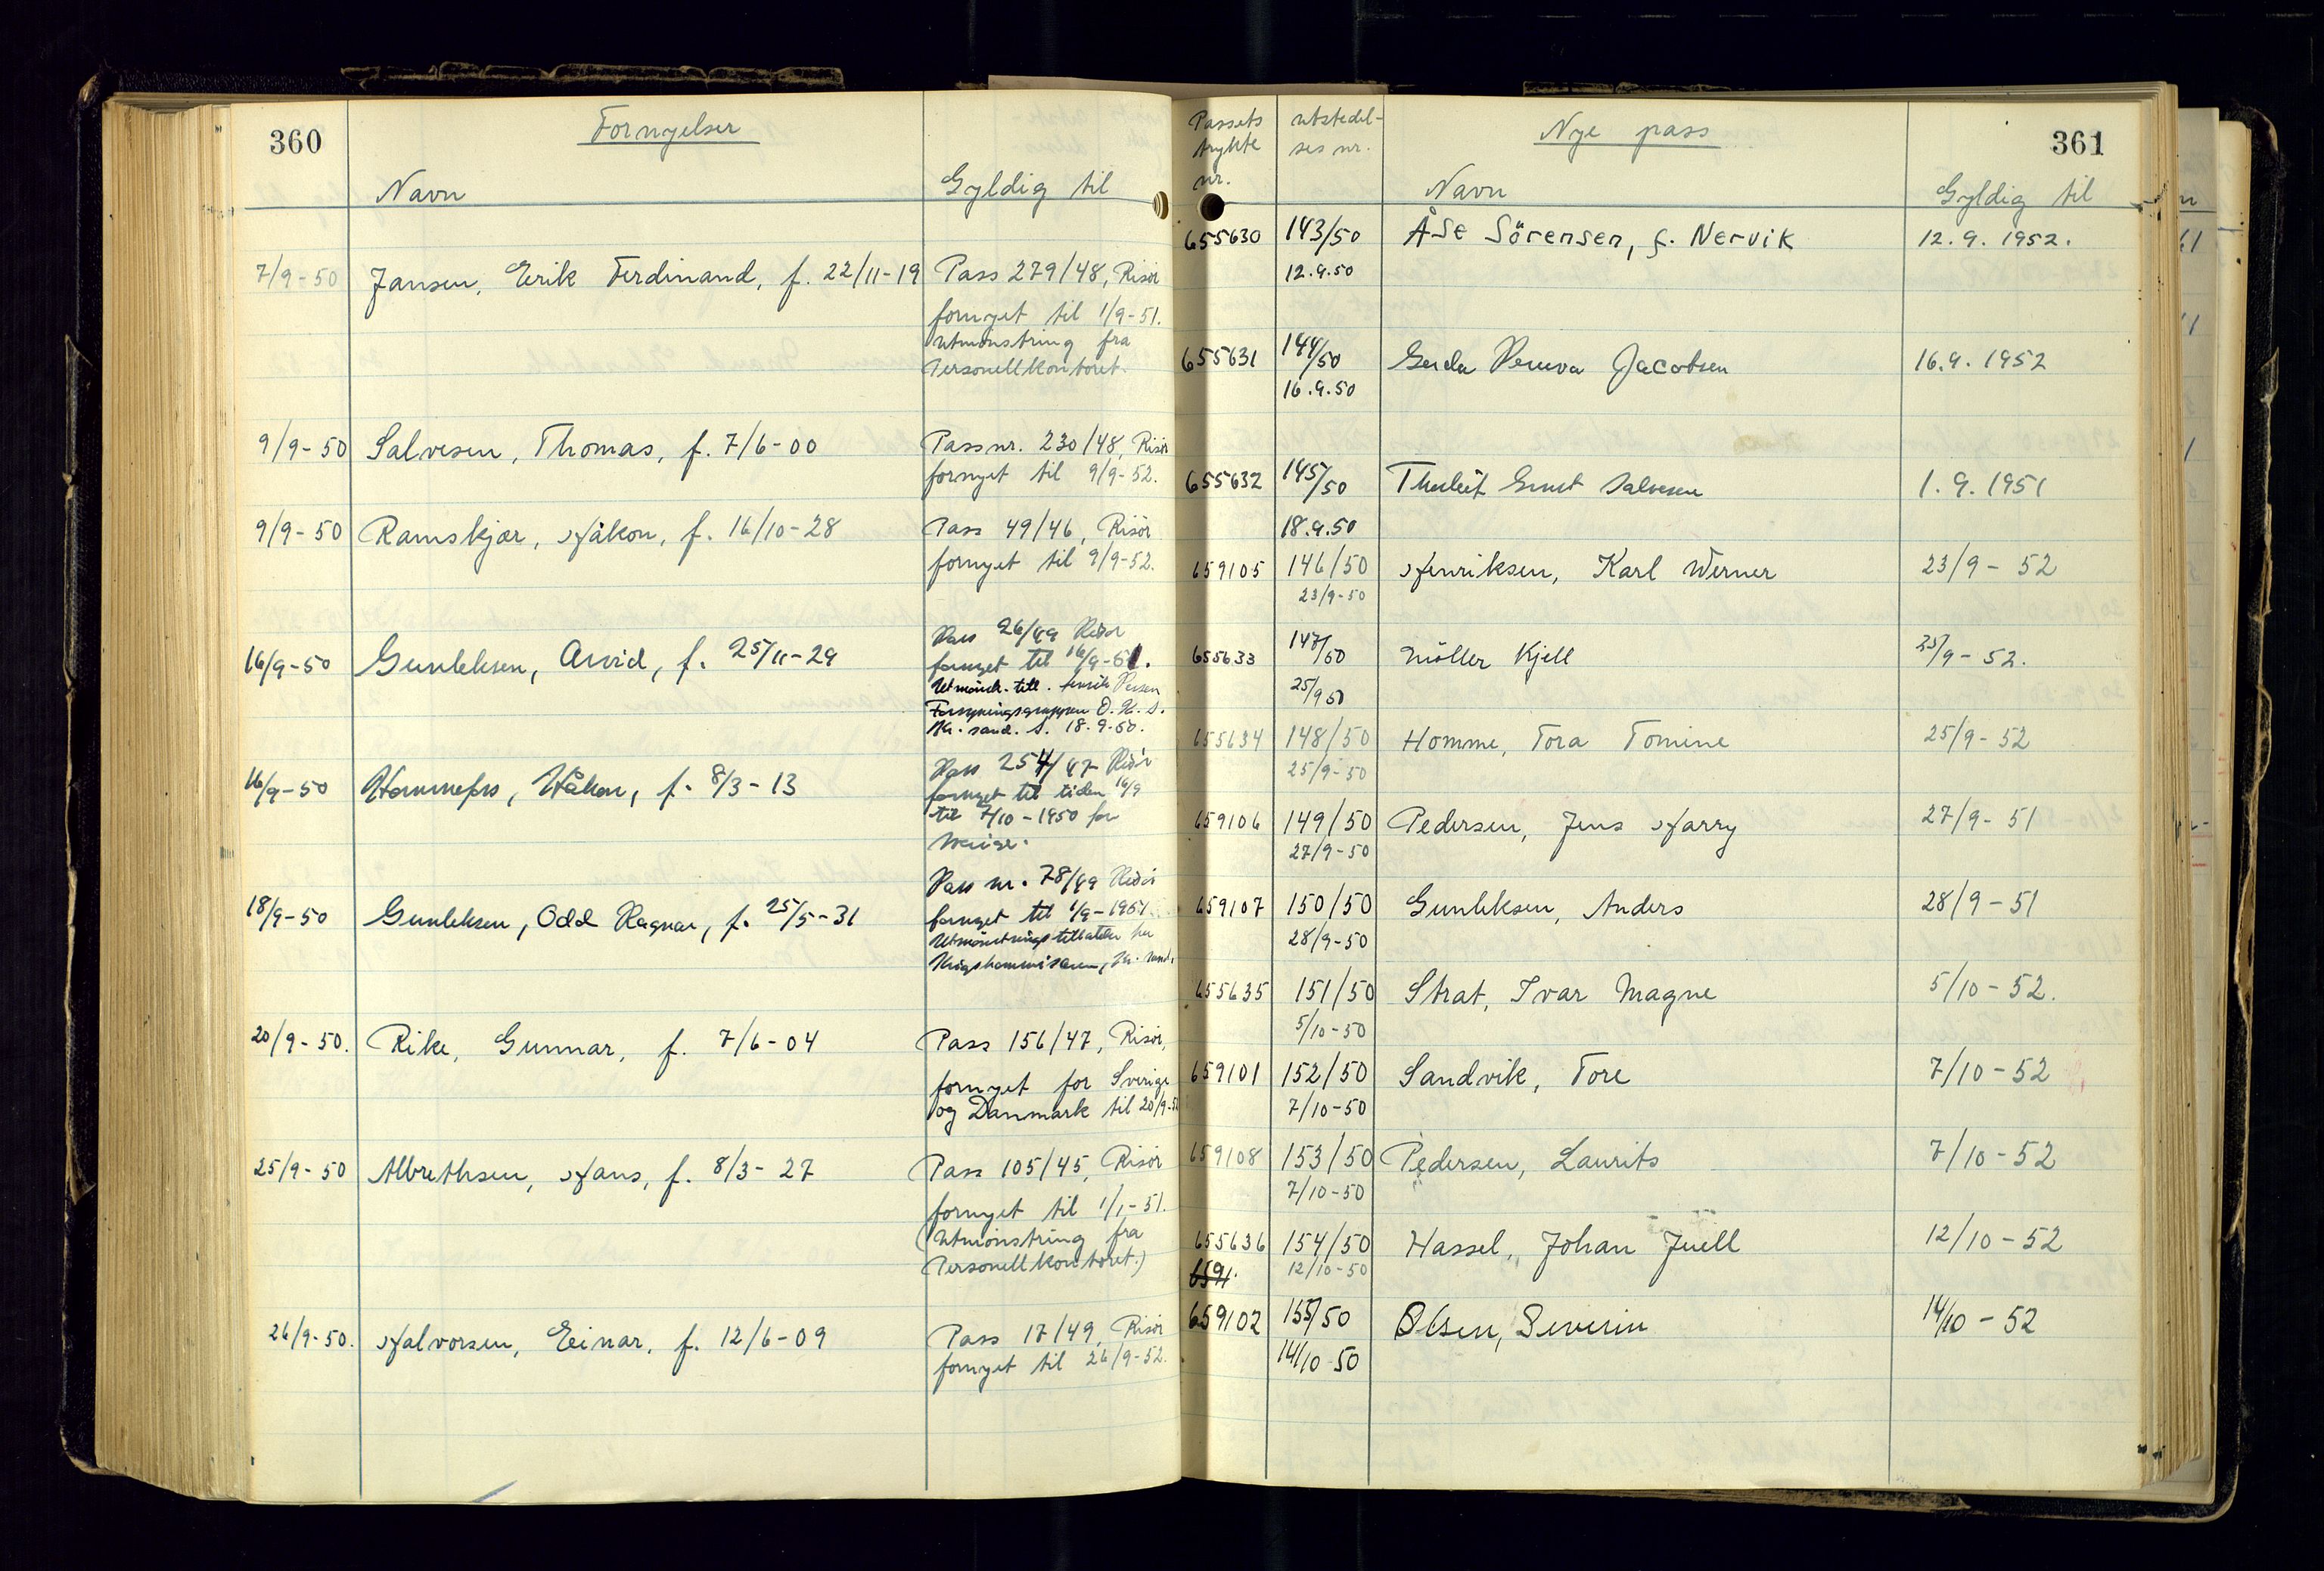 360
Fornyelser
Navn
Gyldig til
7/9-50 Jansen, Erik Ferdinand, f. 22/11-19 Pass 279/48, Risör
fornyet til 1/9-51.
Utmönstring fra
Personellkontoret.
9/9-50 Salvesen, Thomas, f. 7/6-00 Pass nr. 230/48, Risör
fornyet til 9/9-52.
9/9-50 Ramskjær, Håkon, f. 16/10-28 Pass 49/46, Risör
fornyet til 9/9-52.
16/9-50 Gunleksen, Arvid, f. 25/11-29 Pass 26/49 Risör
fornyet til 16/9-51.
Utmönstr. till.
Forsyningsgruppen Ö.K.S.
Kr.sand. S. 18.9-50.
16/9-50 Håkon, f. 8/3-13 Pass 254/47 Risör
fornyet til tiden 16/9
til 7/10-1950 for
Sverige.
18/9-50 Gunleksen, Odd Ragnar, f. 25/5-31 Pass nr. 78/49 Risör
fornyet til 1/9-1951.
Utmönstringstillatelse fra
Krigskommisæren, Kr.sand.
20/9-50. Rike, Gunnar, f. 7/6-04 Pass 156/47, Risör,
fornyet for Sverige
og Danmark til 20/9-52
25/9-50 Albrethsen, Hans, f. 8/3-27 Pass 105/45, Risör
fornyet til 1/1-51.
(Utmönstring fra
Personellkontoret.)
26/9-50. Halvorsen, Einar, f. 12/6-09 Pass 17/49, Risör
fornyet til 26/9-52.
361
Passets
trykte
nr.
utstedel-
ses nr.
Nye pass
Navn
Gyldig til
655630 143/50 Åse Sörensen, f. Nervik 12.9.1952.
12.9.50
655631 144/50 Gerda Jacobsen 16.9.1952
16.9.50
655632 145/50 Ernst Salvesen 1.9.1951
18.9.50
659105 146/50 Henriksen, Karl Werner 23/9-52
23/9-50
655633 147/50 Möller Kjell 25/9-52.
25/9 50
655634 148/50 Homme, Tora Tomine 25/9-52
25/9-50
659106 149/50 Pedersen, Jens Harry 27/9-51
27/9-50
659107 150/50 Gunleksen, Anders 28/9-51
28/9-50
655635 151/50 Strat, Ivar Magne 5/10-52.
5/10-50
659101 152/50 Sandvik, Tore 7/10-52
7/10-50
659108 153/50 Pedersen, Laurits 7/10-52
7/10-50
655636 154/50 Hassel, Johan Juell 12/10-52
6591. 12/10-50
659102 155/50 Olsen, Severin 14/10-52
14/10-50